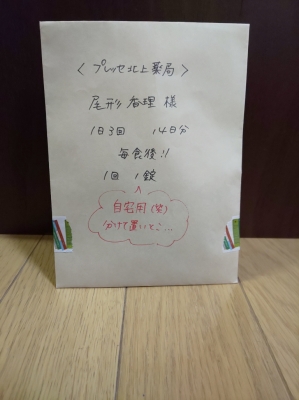 〈プレッセ北上薬局〉
尾形香理様
1日3回 14日分
毎食後!!
1回 1錠
自宅用(笑)
分けて置いとこ…